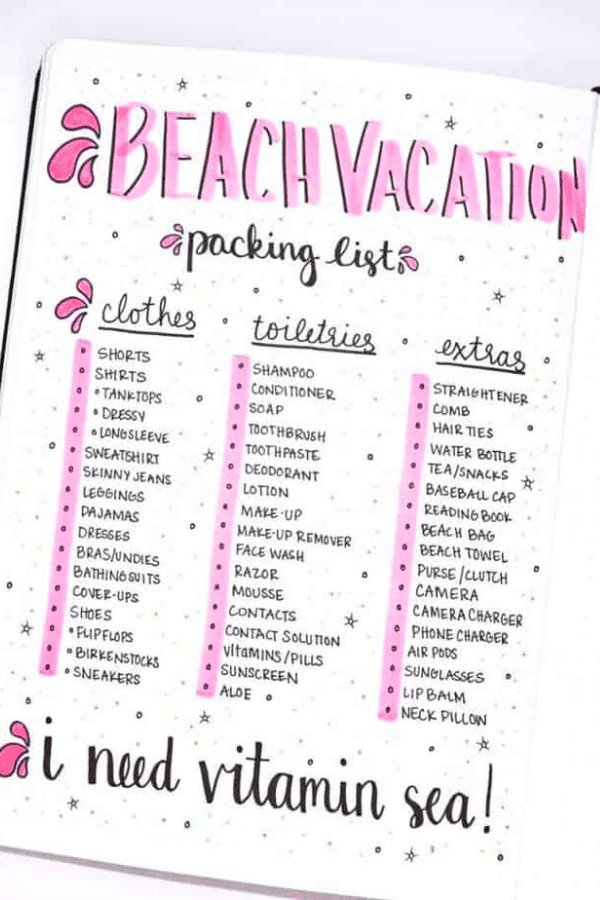 BEACH VACATION
packing list
clothes
SHORTS
SHIRTS
• TANKTOPS
• DRESSY
• LONGSLEEVE
SWEATSHIRT
SKINNY JEANS
LEGGINGS
PAJAMAS
DRESSES
BRAS/UNDIES
BATHINGSUITS
COVER-UPS
SHOES
• FLIPFLOPS
• BIRKENSTOCKS
• SNEAKERS
toiletries
SHAMPOO
CONDITIONER
SOAP
TOOTHBRUSH
TOOTHPASTE
DEODORANT
LOTION
MAKE-UP
MAKE-UP REMOVER
FACE WASH
RAZOR
MOUSSE
CONTACTS
CONTACT SOLUTION
VITAMINS/PILLS
SUNSCREEN
ALOE
extras
STRAIGHTENER
COMB
HAIR TIES
WATER BOTTLE
TEA/SNACKS
BASEBALL CAP
READING BOOK
BEACH BAG
BEACH TOWEL
PURSE/CLUTCH
CAMERA
CAMERA CHARGER
PHONE CHARGER
AIR PODS
SUNGLASSES
LIP BALM
NECK PILLOW
i need vitamin sea!